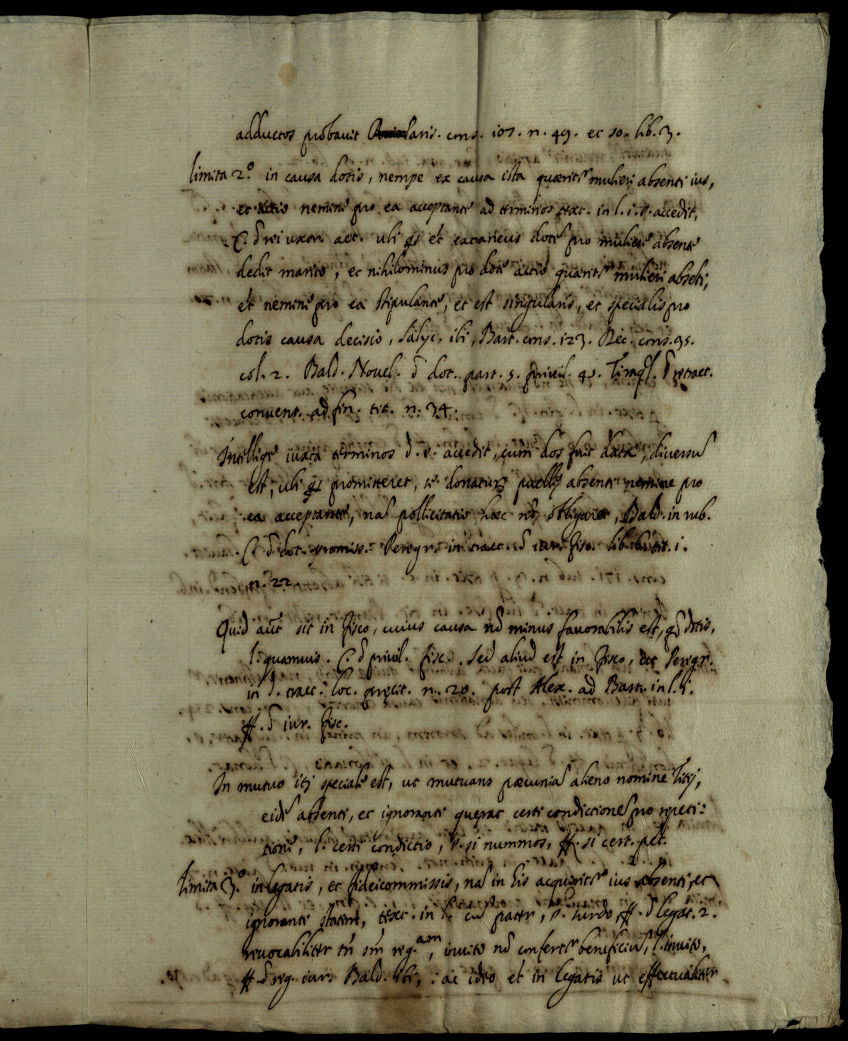 adductos probauit Paris. cons. 107. n. 49. et 50. lib. 3.
limita 2.º in causa dotis, nempe ex causa ista quærit.r mulieri absenti ius,
et actio nemine pro ea acceptante ad terminos tex. in l. 1. §. accedit,
C. d rei uxor. act. ubi qs et extraneus dotē pro muliere absente
dedit marito, et nihilominus pro dote actio quærit.r mulieri absēti,
et nemine pro ea stipulante, et est singularis, et specialis pro
dotis causa decisio, Salyc. ibi, Bart. cons. 123. cons. 95.
col. 2. Bald. Nouel. d dot. part. 5. priuil. 45. Tiraql. d retract.
conuent. ad fin. tit. n. 34.
Intellige iuxta terminos d. §. accedit, cum dos fuit data, diuersū
est, ubi qs promitteret, donatur puellæ absenti nemine pro
ea acceptante, nā pollicitatio hæc nō obligaret, Bald. in rub.
C. d dot. promiss. Peregr. in tract. d iur. fisc. lib. tit. 1.
n. 22.
Quid aūt sit in fisco, cuius causa nō minus fauorabilis est, q̄ dotis,
l. quamuis. C. d priuil. fisc. Sed aliud est in fisco, Peregr.
in d. tract. loc. præcit. n. 20. post Alex. ad Bart. in l.
ff. d iur. fisc.
In mutuo itē speciale est, ut mutuans pæcuniā alieno nomine Titij,
eidē absenti, et ignoranti querat certi condictionē pro repeti:
tione, l. certi condictio, §. si nummos, ff. si cert. pet.
limita 3.º in legatis, et fideicommissis, nā in his acquirit.r ius absenti, et
ignoranti statim, tex. in l. cū pater, §. surdo ff. d legat. 2.
reuocabiliter tn sm reg.am, inuito nō confert.r beneficiū, l. inuito,
ff. d reg. iur. Bald. ibi, : ac ideo et in legatis ut effectualiter